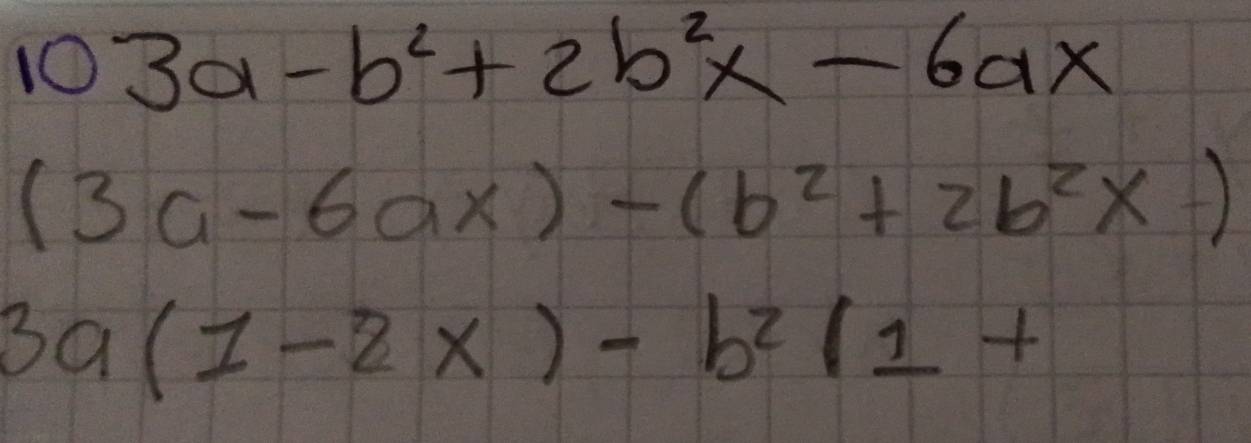 10 3a - b² + 2b²x - 6ax
(3a - 6ax) - (b² + 2b²x)
3a(1 - 2x) - b²(1 +